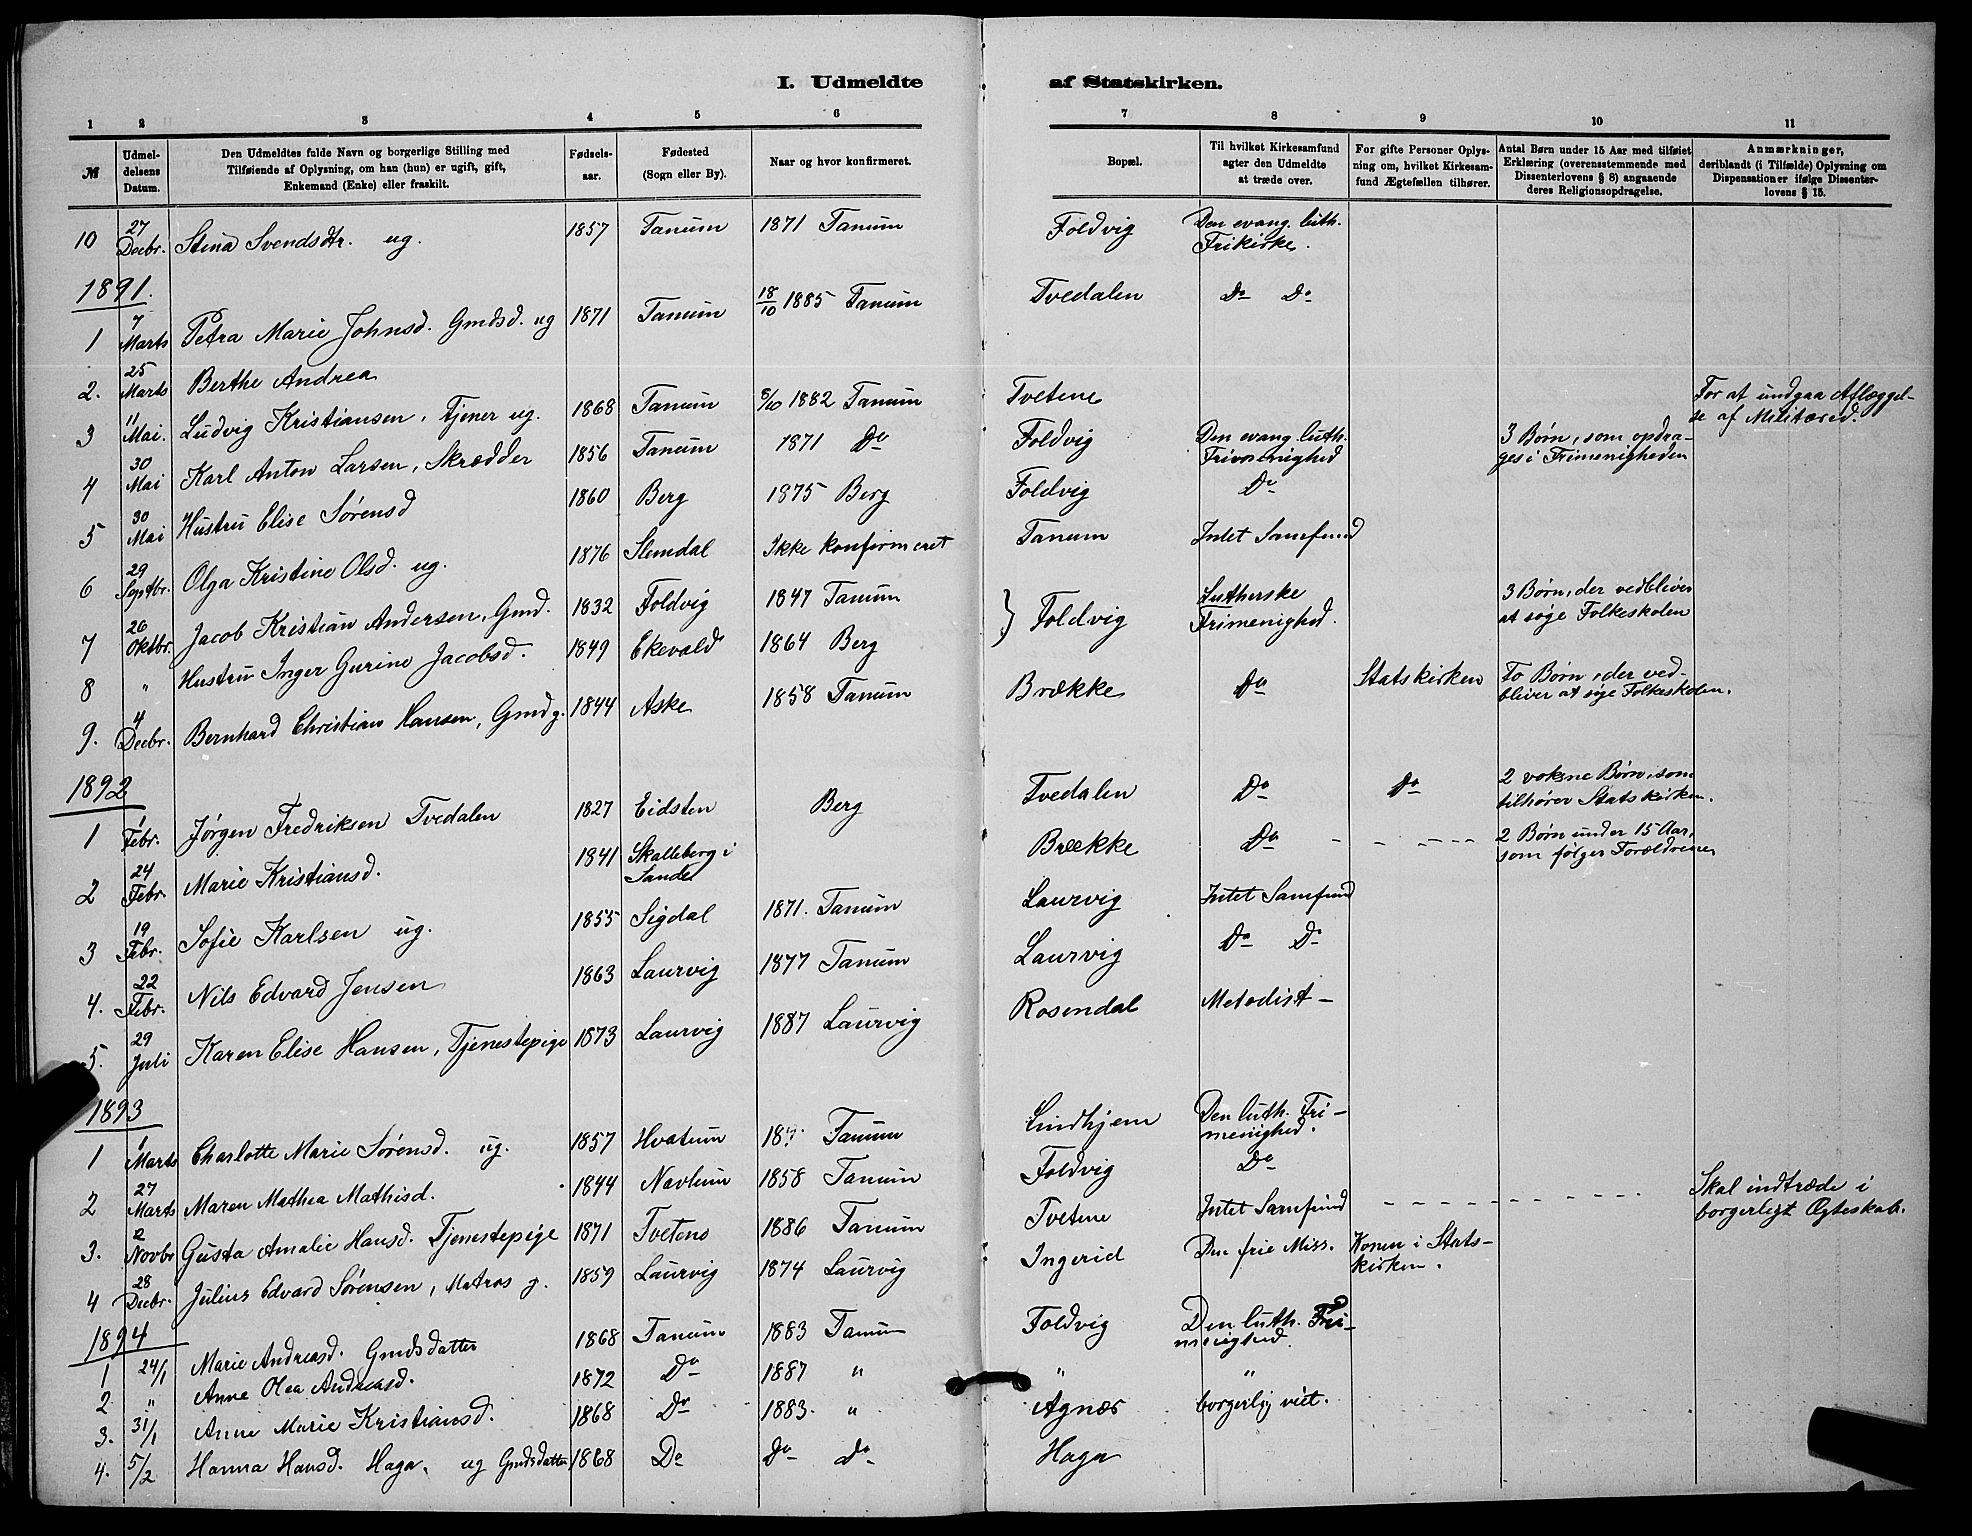 I. Udmeldte af Statskirken.
1 2 3 4 5 6 7 8 9 10 11
№
Udmel-
delsens
Datum.
Den Udmeldtes fulde Navn og borgerlige Stilling med
Tilføiende af Oplysning, om han (hun) er ugift, gift,
Enkemand (Enke) eller fraskilt.
Fødsels-
aar.
Fødested
(Sogn eller By).
Naar og hvor konfirmeret.
Bopæl.
Til hvilket Kirkesamfund
agter den Udmeldte
at træde over.
For gifte Personer Oplys-
ning om, hvilket Kirkesam-
fund Ægtefællen tilhører.
Antal Børn under 15 Aar med tilføiet
Erklæring (overensstemmende med
Dissenterlovens § 8) angaaende
deres Religionsopdragelse.
Anmærkninger,
deriblandt (i Tilfælde) Oplysning om
Dispensationer ifølge Dissenter-
lovens § 15.
10 27 Decbr. Stina Svendsdtr. ug. 1857 Tanum 1871 Tanum Foldvig Den evang. luth.
Frikirke.
1891.
1 7 Marts Petra Marie Johnsd. Gmdsd. ug 1871 Tanum 18/10 1885 Tanum Tvedalen Do Do
2. 25 Marts Berthe Andrea
3 11 Mai. Ludvig Kristiansen, Tjener ug. 1868 Tanum 8/10 1882 Tanum Tvetene For at undgaa Aflæggel-
se af Militæred.
4 30 Mai Karl Anton Larsen, Skrædder 1856 Tanum 1871 Do Foldvig Den evang. luth. 3 Børn, som opdra-
Frimenighed ges i Frimenigheden
5 30 Mai Hustru Elise Sørensd 1860 Berg 1875 Berg Foldvig Do
6 29 Septbr. Olga Kristine Olsd. ug. 1876 Slemdal Ikke konfirmeret Tanum Intet Samfund
7 26 Oktbr. Jacob Kristian Andersen, Gmd. 1832 Foldvig 1847 Tanum } Foldvig Lutherske 3 Børn, der vedbliver
Frimenighed. at søge Folkeskolen
8 " Hustru Inger Gurine Jacobsd. 1849 Ekevold 1864 Berg
9. 4 Decbr. Bernhard Christian Hansen, Gmd g. 1844 Aske 1858 Tanum Brække Do Statskirken To Børn, der ved-
bliver at søge Folkeskolen.
1892
1 1 Febr. Jørgen Fredriksen Tvedalen 1827 Eidsten Berg Tvedalen Do Do 2 voksne Børn, som
tilhører Statskirken.
2 24 Febr. Marie Kristiansd. 1841 Skalleberg i Brække Do - - - - - - 2 Børn under 15 Aar,
som følger Forældrene
3 19 Febr. Sofie Karlsen ug. 1855 Sigdal 1871. Tanum Laurvig Intet Samfund
4. 22 Febr. Nils Edvard Jensen 1863 Laurvig 1877 Tanum Laurvig Do Do
5. 29 Juli Karen Elise Hansen, Tjenestepige 1873 Laurvig 1887 Laurvig Rosendal Metodist-
1893
1 1 Marts Charlotte Marie Sørensd. ug. 1857 Hvatum Tanum Lindhjem Den luth. Fri-
menighed.
2 27 Marts Maren Mathea Mathisd. 1844 Navlum 1858 Tanum Foldvig Do
3. 2 Novbr Gusta Amalie Hansd. Tjenestepige 1871 Tvetene 1886 Tanum Tvetene Intet Samfund - - - - - - - - - - Skal indtræde i
borgerligt Ægteskab.
4 28 Decbr. Julius Edvard Sørensen, Matros g. 1859 Laurvig 1874 Laurvig Ingerid Den frie Miss. Konen i Stats-
kirken.
1894
1 24/1 Marie Andreasd. Gmdsdatter 1868 Tanum 1883 Tanum Foldvig Den luth. Fri-
menighed.
2. " Anne Olea Andreasd. 1872 Do 1887 " " "
3. 31/1 Anne Marie Kristiansd. 1868 Do 1883. " Agnæs borgerlig viet.
4. 5/2 Hanna Hansd. Haga. ug Gmdsdatter 1868 Do Do Do Haga